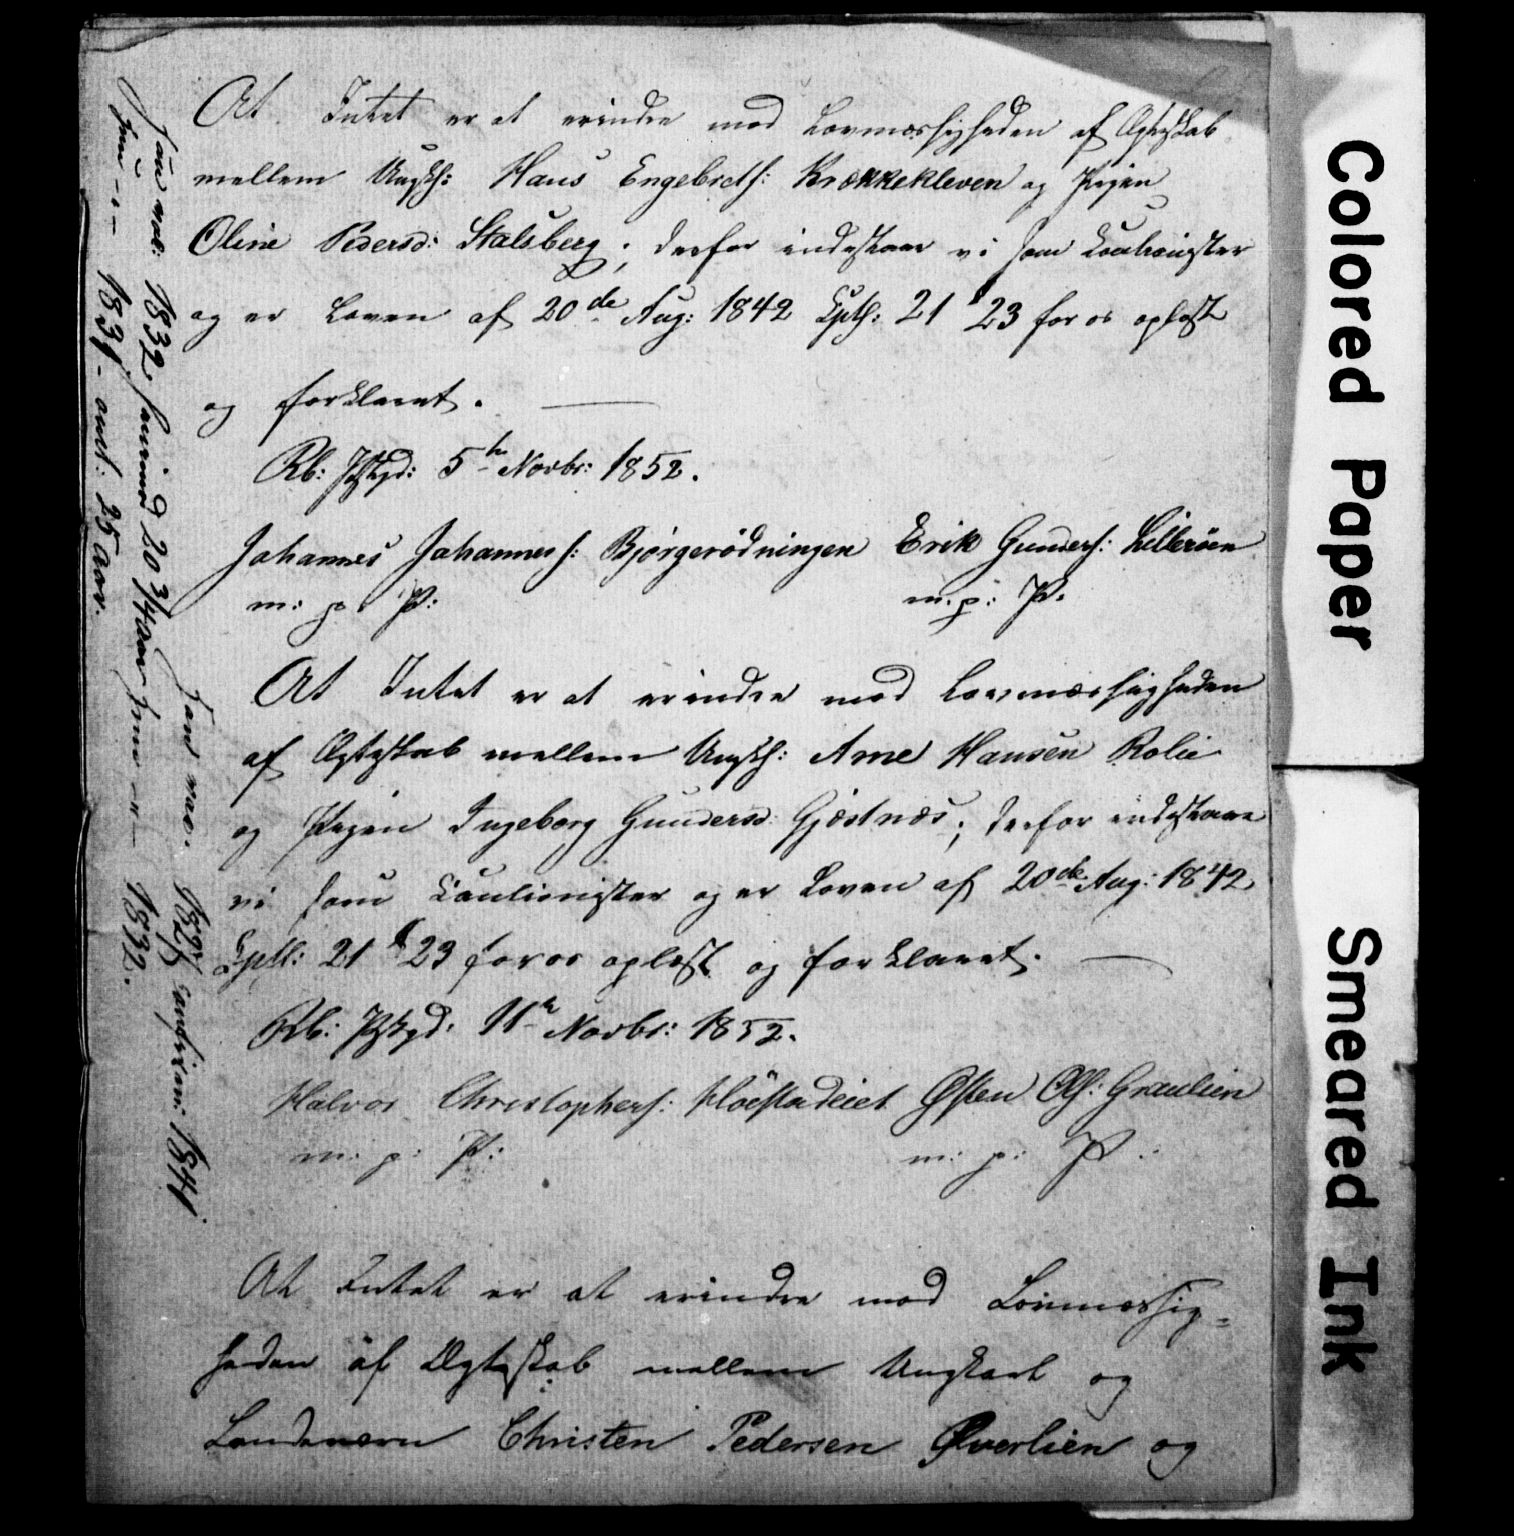 At Intet er at erindre mod Lovmæssigheden af Ægteskab
mellem Ungk: Hans Engebrets: Krækkekleven og Pigen
Oline Pedersd: Stalsberg; derfor indestaae vi som Cautionister
og er Loven af 20de Aug: 1842 Cptl: 21 § 23 for os oplæst
og forklaret.
Rb: Pstgd: 5te Novbr: 1852.
Johannes Johanness: Bjørgerødningen Erik Gunders: Lillerøen
m: p: P: m. p: P:
At Intet er at erindre mod Lovmæssigheden
af Ægteskab mellem Ungk: Arne Hansen Rolie
og Pigen Ingeborg Gundersd: Gjæstnæs; derfor indestaae
vi som Cautionister og er Loven af 20de Aug: 1842
Cptl: 21 § 23 for os oplæst og forklaret.
Rb: Pstgd: 11te Novbr: 1852.
Halvor Christophers: Høistadeiet Østen Ols: Graulien
m: p: P: m: p: P:
At Intet er at erindre mod Lovmæssig=
heden af Ægteskab mellem Ungkarl og
Landeværn Christen Pedersen Øverlien og
1832 20 3/4 aar
1831 25 Nov.
1825 1841
1832.
Colored Paper
Smeared Ink